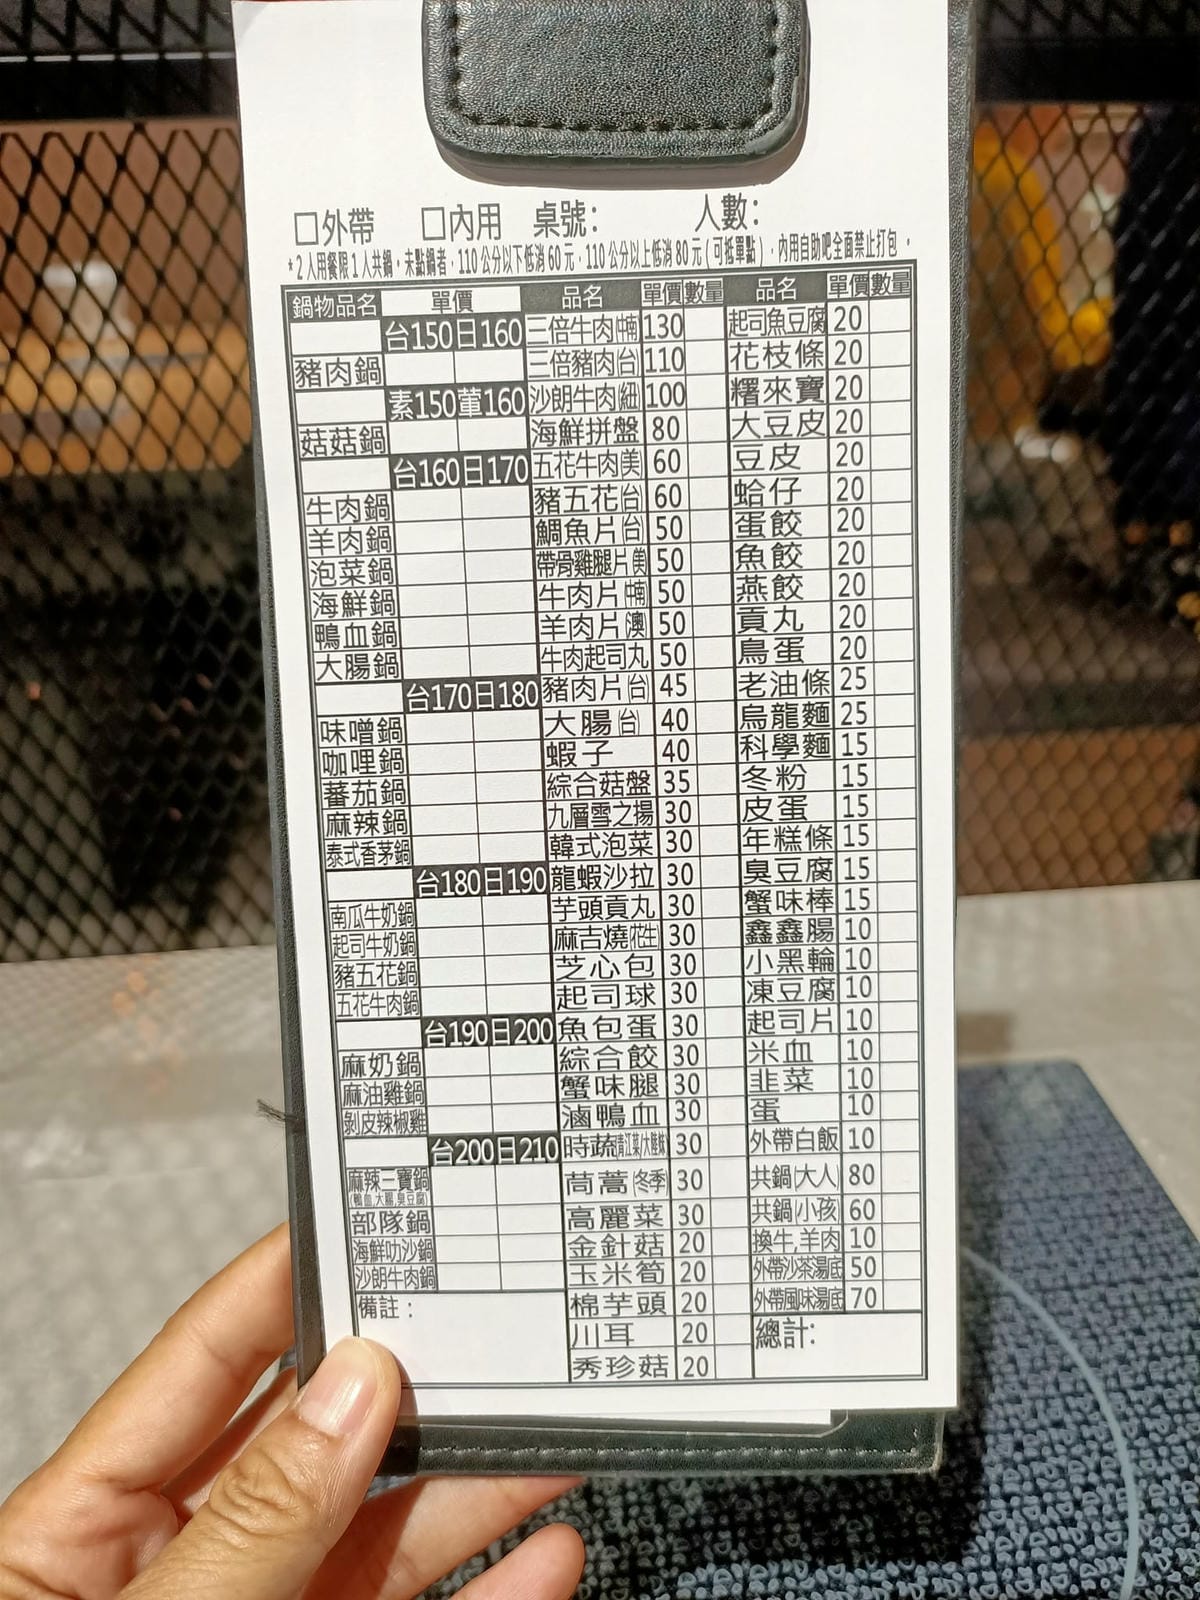 □外帶 □內用 桌號： 人數：
*2人用餐限1人共鍋。未點鍋者，110公分以下低消60元，110公分以上低消80元(可抵單點)，內用自助吧全面禁止打包。
鍋物品名 單價
台150日160
豬肉鍋
素150葷160
菇菇鍋
台160日170
牛肉鍋
羊肉鍋
泡菜鍋
海鮮鍋
鴨血鍋
大腸鍋
台170日180
味噌鍋
咖哩鍋
蕃茄鍋
麻辣鍋
泰式香茅鍋
台180日190
南瓜牛奶鍋
起司牛奶鍋
豬五花鍋
五花牛肉鍋
台190日200
麻奶鍋
麻油雞鍋
剝皮辣椒雞
台200日210
麻辣三寶鍋
(鴨血,大腸,臭豆腐)
部隊鍋
海鮮叻沙鍋
沙朗牛肉鍋
備註：
品名 單價 數量
三倍牛肉 130
三倍豬肉(台) 110
沙朗牛肉(紐) 100
海鮮拼盤 80
五花牛肉(美) 60
豬五花(台) 60
鯛魚片(台) 50
帶骨雞腿片(美) 50
牛肉片 50
羊肉片(澳) 50
牛肉起司丸 50
豬肉片(台) 45
大腸(台) 40
蝦子 40
綜合菇盤 35
九層雪之揚 30
韓式泡菜 30
龍蝦沙拉 30
芋頭貢丸 30
麻吉燒(花生) 30
芝心包 30
起司球 30
魚包蛋 30
綜合餃 30
蟹味腿 30
滷鴨血 30
時蔬 30
茼蒿(冬季) 30
高麗菜 30
金針菇 20
玉米筍 20
棉芋頭 20
川耳 20
秀珍菇 20
品名 單價 數量
起司魚豆腐 20
花枝條 20
糬來寶 20
大豆皮 20
豆皮 20
蛤仔 20
蛋餃 20
魚餃 20
燕餃 20
貢丸 20
鳥蛋 20
老油條 25
烏龍麵 25
科學麵 15
冬粉 15
皮蛋 15
年糕條 15
臭豆腐 15
蟹味棒 15
鑫鑫腸 10
小黑輪 10
凍豆腐 10
起司片 10
米血 10
韭菜 10
蛋 10
外帶白飯 10
共鍋(大人) 80
共鍋(小孩) 60
換牛,羊肉 10
外帶沙茶湯底 50
外帶風味湯底 70
總計：